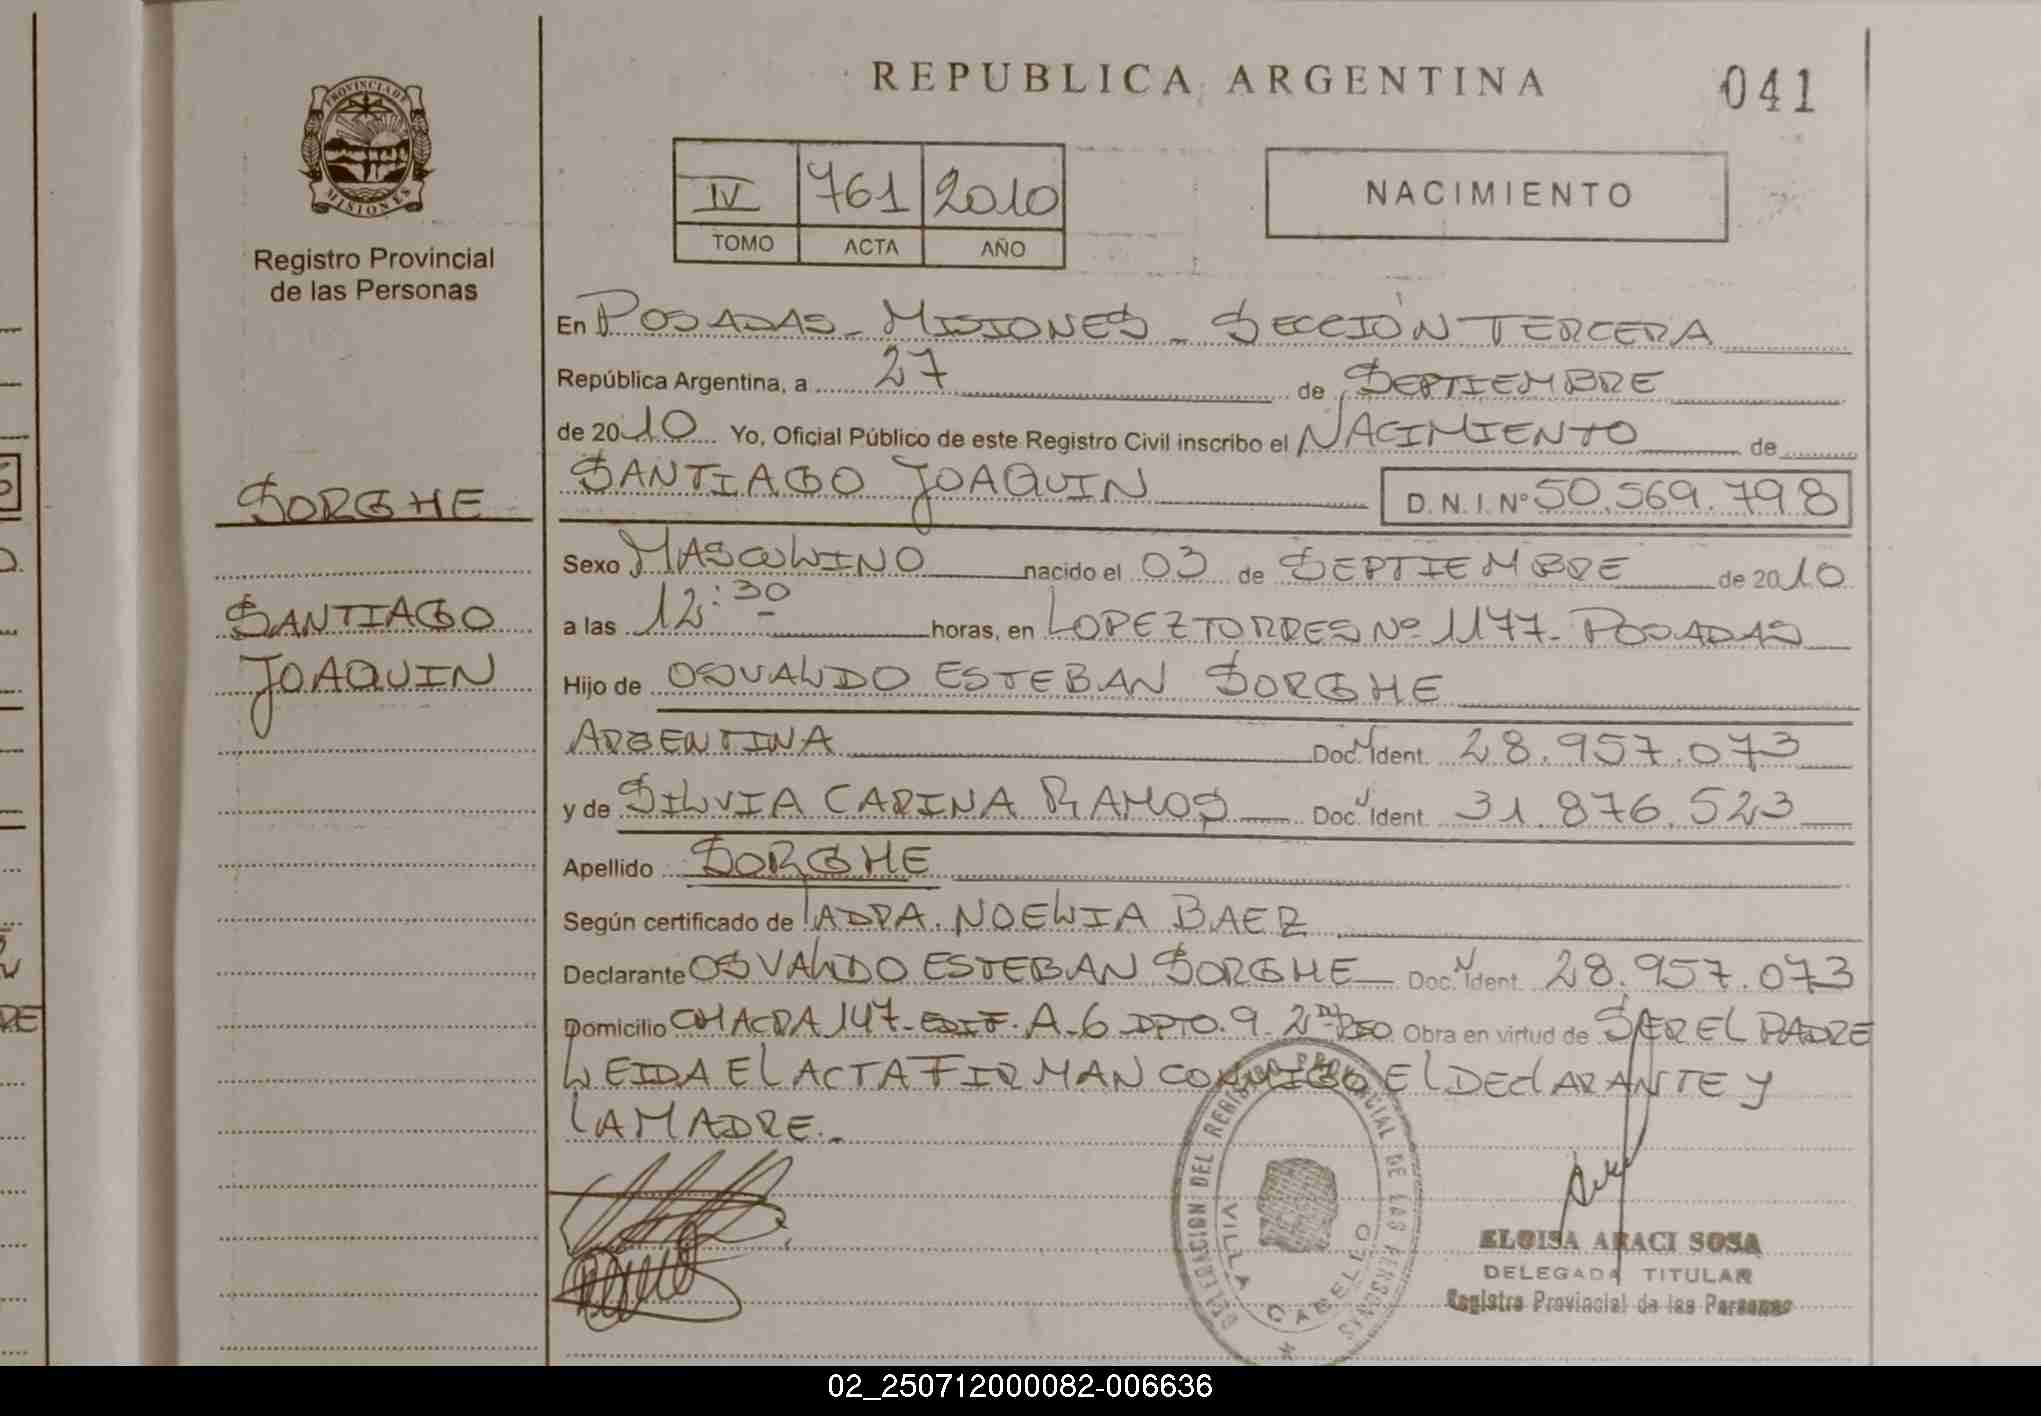 REPUBLICA ARGENTINA
041
PROVINCIA DE
MISIONES
Registro Provincial
de las Personas
IV 761 2010
TOMO ACTA AÑO
NACIMIENTO
En POSADAS - MISIONES - SECCIÓN TERCERA
República Argentina, a 27 de SEPTIEMBRE
de 2010 Yo, Oficial Público de este Registro Civil inscribo el NACIMIENTO de
SANTIAGO JOAQUIN D.N.I. Nº 50.569.798
SORGHE
SANTIAGO
JOAQUIN
Sexo MASCULINO nacido el 03 de SEPTIEMBRE de 2010
a las 12:30 horas, en LOPEZ TORRES Nº 1177 - POSADAS
Hijo de OSVALDO ESTEBAN SORGHE
ARGENTINA Doc. Ident. 28.957.073
y de SILVIA CARINA RAMOS Doc. Ident. 31.876.523
Apellido SORGHE
Según certificado de LADRA. NOELIA BAEZ
Declarante OSVALDO ESTEBAN SORGHE Doc. Ident. 28.957.073
Domicilio CHACRA 147 - EDIF. A-6 DPTO. 9 - 2 Obra en virtud de SER EL PADRE
LEIDA EL ACTA FIRMAN CONMIGO EL DECLARANTE Y
LA MADRE.-
DELEGACION DEL REGISTRO PROVINCIAL DE LAS PERSONAS
VILLA CABELLO
ELOISA ARACI SOSA
DELEGADA TITULAR
Registro Provincial de las Personas
02_250712000082-006636